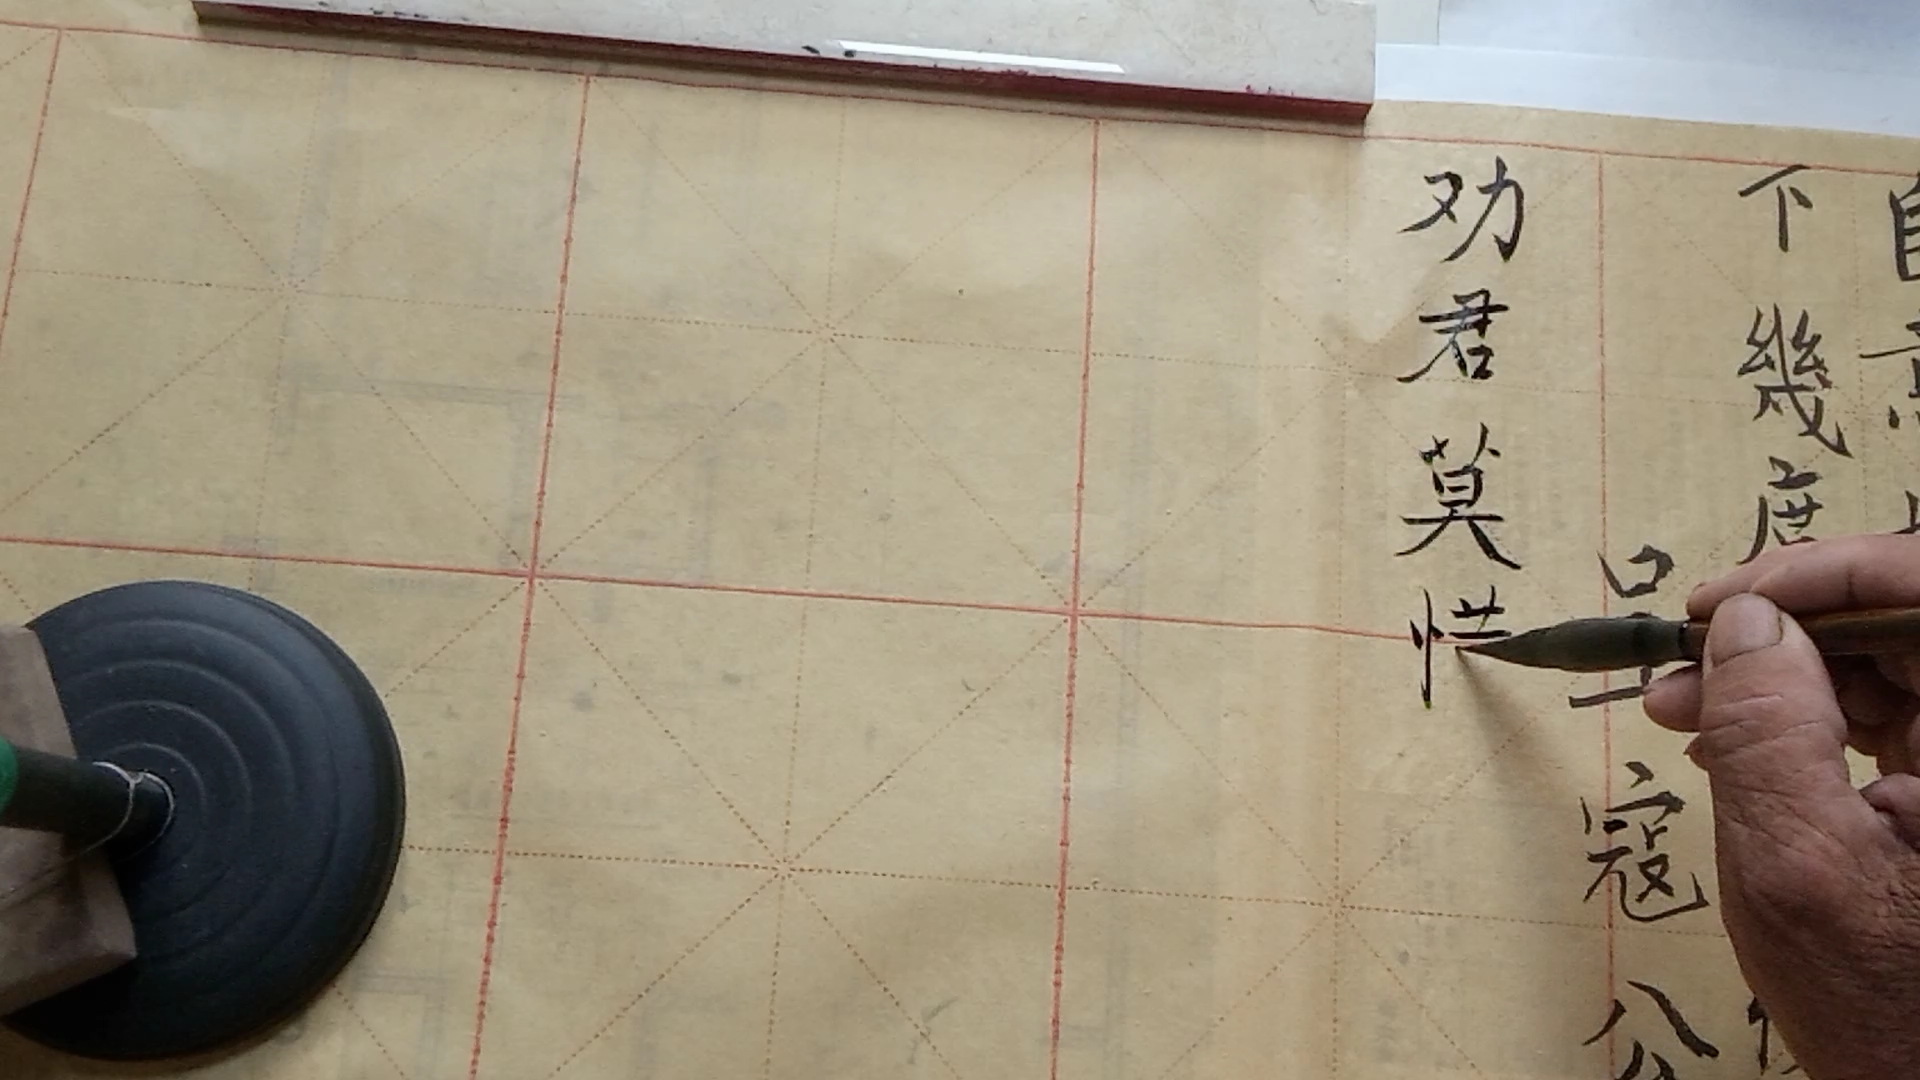 自意
下幾度
呈寇公
劝君莫惜